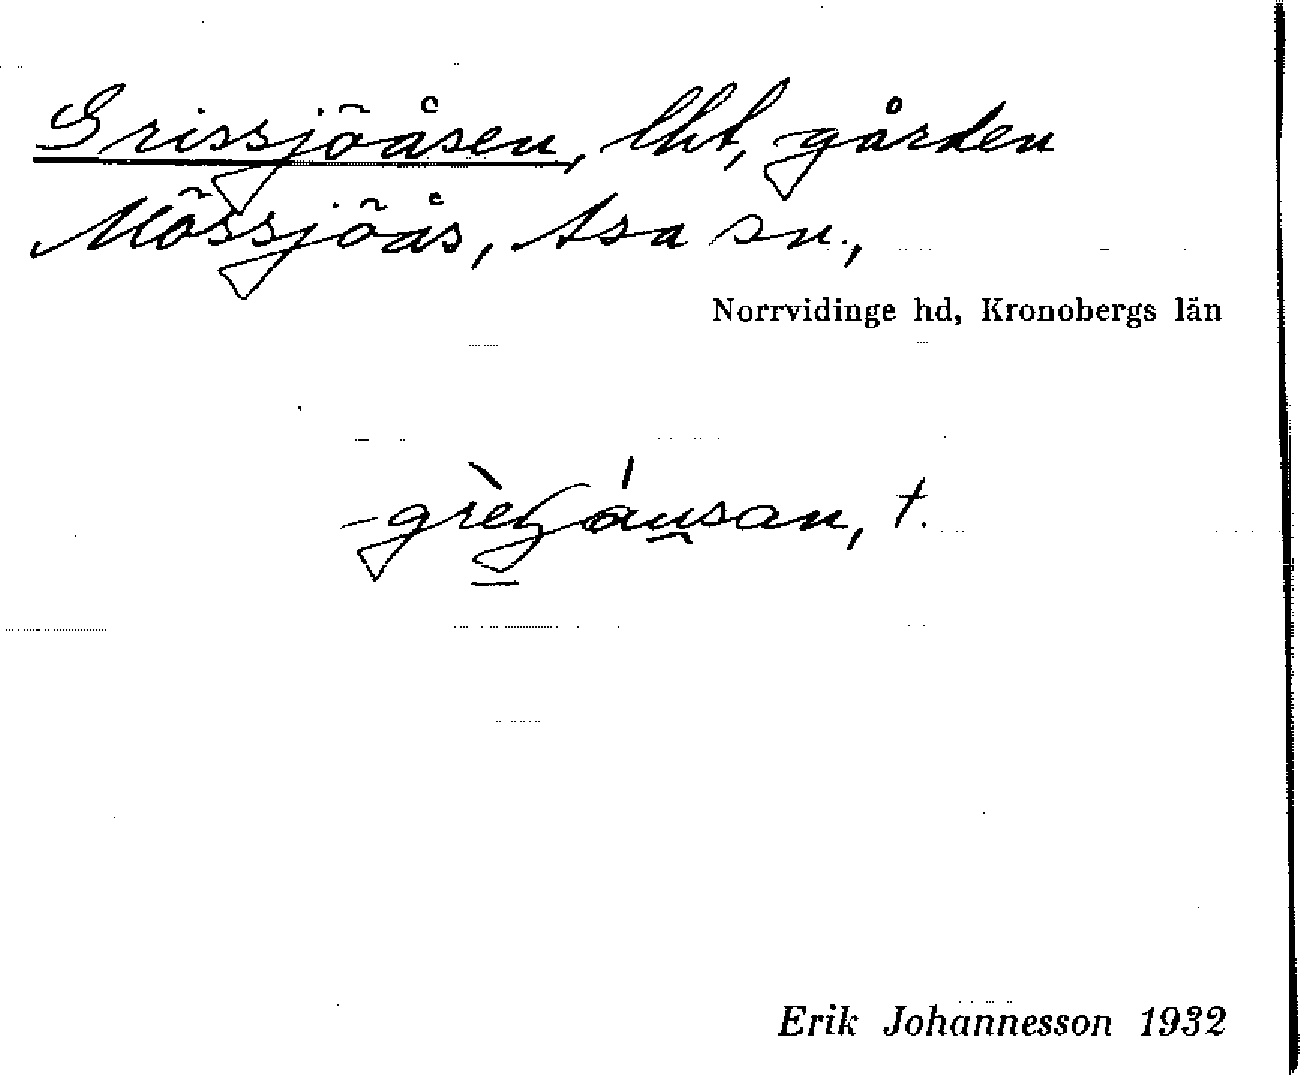 Grissjöåsen, lht, gården
Mössjöås, Asa sn.,
Norrvidinge hd, Kronobergs län
t.
Erik Johannesson 1932